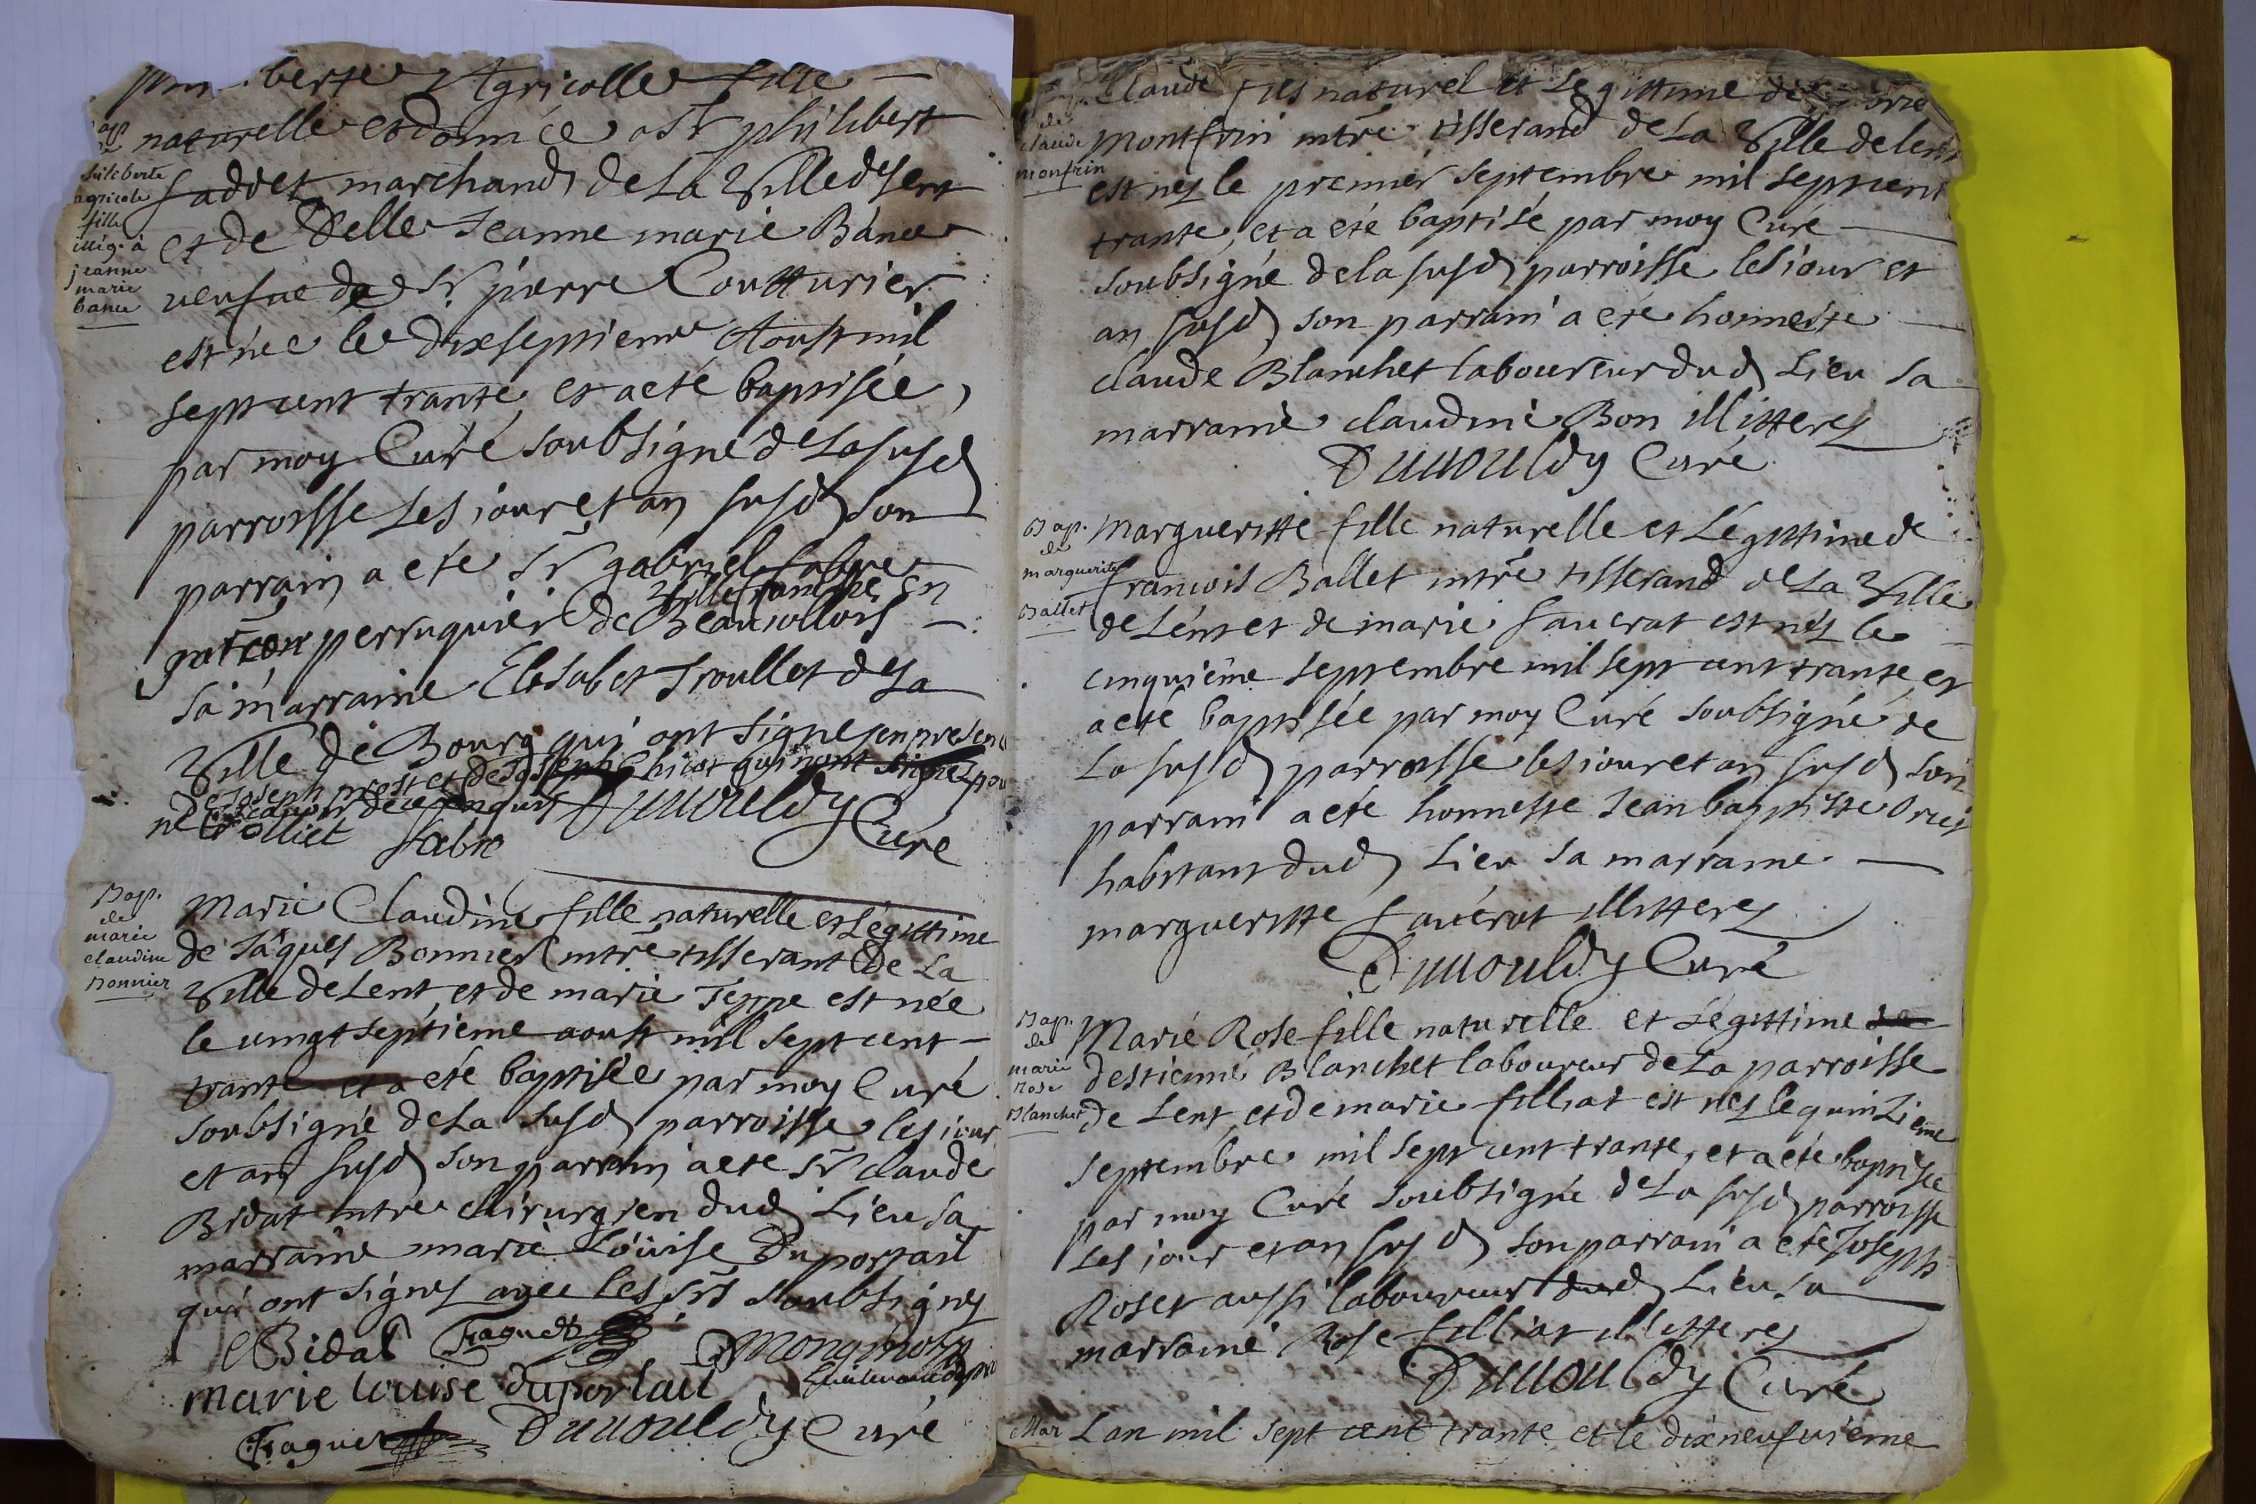 Agricolle fille
naturelle et donnée a Sr philibert
faddet marchand de la Ville de Lent
et de Delle Jeanne marie Bance
veufue de Sr pierre Coutturier
est née le dixseptieme Aoust mil
sept cent trante et a eté baptisée
par moy Curé soubsigné de La susd
parroisse Les iour et an susd son
parrain a eté Sr gabriel fabre
garcon perruquier de Ville franche en
Beauiollois
sa marraine Elisabet Troullet de La
Ville de Bourg qui ont signe en presence
de Joseph prost et de Joseph Chicot qui n'ont signe pour
ne scauoir de ce enquis
fabre Duuouldy Curé
Bap.
de
marie
claudine
Bonnier
Marie Claudine fille naturelle et Légittime
de Jâques Bonnier mtre tisserant de La
Ville de Lent et de marie Teppe est née
le uingt septieme aoust mil sept cent
trante et a eté baptisée par moy Curé
soubsigné de La susd parroisse les iour
et an susd son parrain a ete Sr claude
Bidat mtre chirurgien dud Lieu sa
marraine marie Loüise Duportail
qui ont signes auec les srs soubsignes
Bidat Faguet
marie louise duportail
Faguet Duuouldy Curé
Bap.
de
claude
monfrin
Claude fils naturel et Legittime de
Montfrin mtre tisserand de La Ville de lent
est nes le premier septembre mil sept cent
trante, et a eté baptisé par moy Curé
soubsigné de la susd parroisse les iour et
an susd son parrain a eté honneste
claude Blanchet laboureur dud Lieu sa
marraine claudine Bon illitteres
Duuouldy Curé
Bap.
de
marguerite
Ballet
Margueritte fille naturelle et Légittime de
francois Ballet mtre tisserand de La Ville
de Lent et de marie fauerat est nés le
cinquième septembre mil sept cent trante et
a eté baptisée par moy Curé soubsigné de
La susd parroisse les iour et an susd son
parrain a eté honneste Jean baptiste
habitant dud Lieu sa marraine
margueritte fauérat illitteres
Duuouldy Curé
Bap.
de
marie
rose
Blanchet
Marie Rose fille naturelle et Légittime
destienne Blanchet laboureur de La parroisse
de Lent, et de marie filliat est nes le quinzieme
septembre mil sept cent trante, et a eté baptisée
par moy Curé soubsigné de La susd parroisse
Les iour et an susd son parrain a eté Joseph
Roset aussi laboureur dud Lieu sa
marraine Rose filliat illitteres
Duuouldy Curé
Mar Lan mil sept cent trante et le dixneufuième